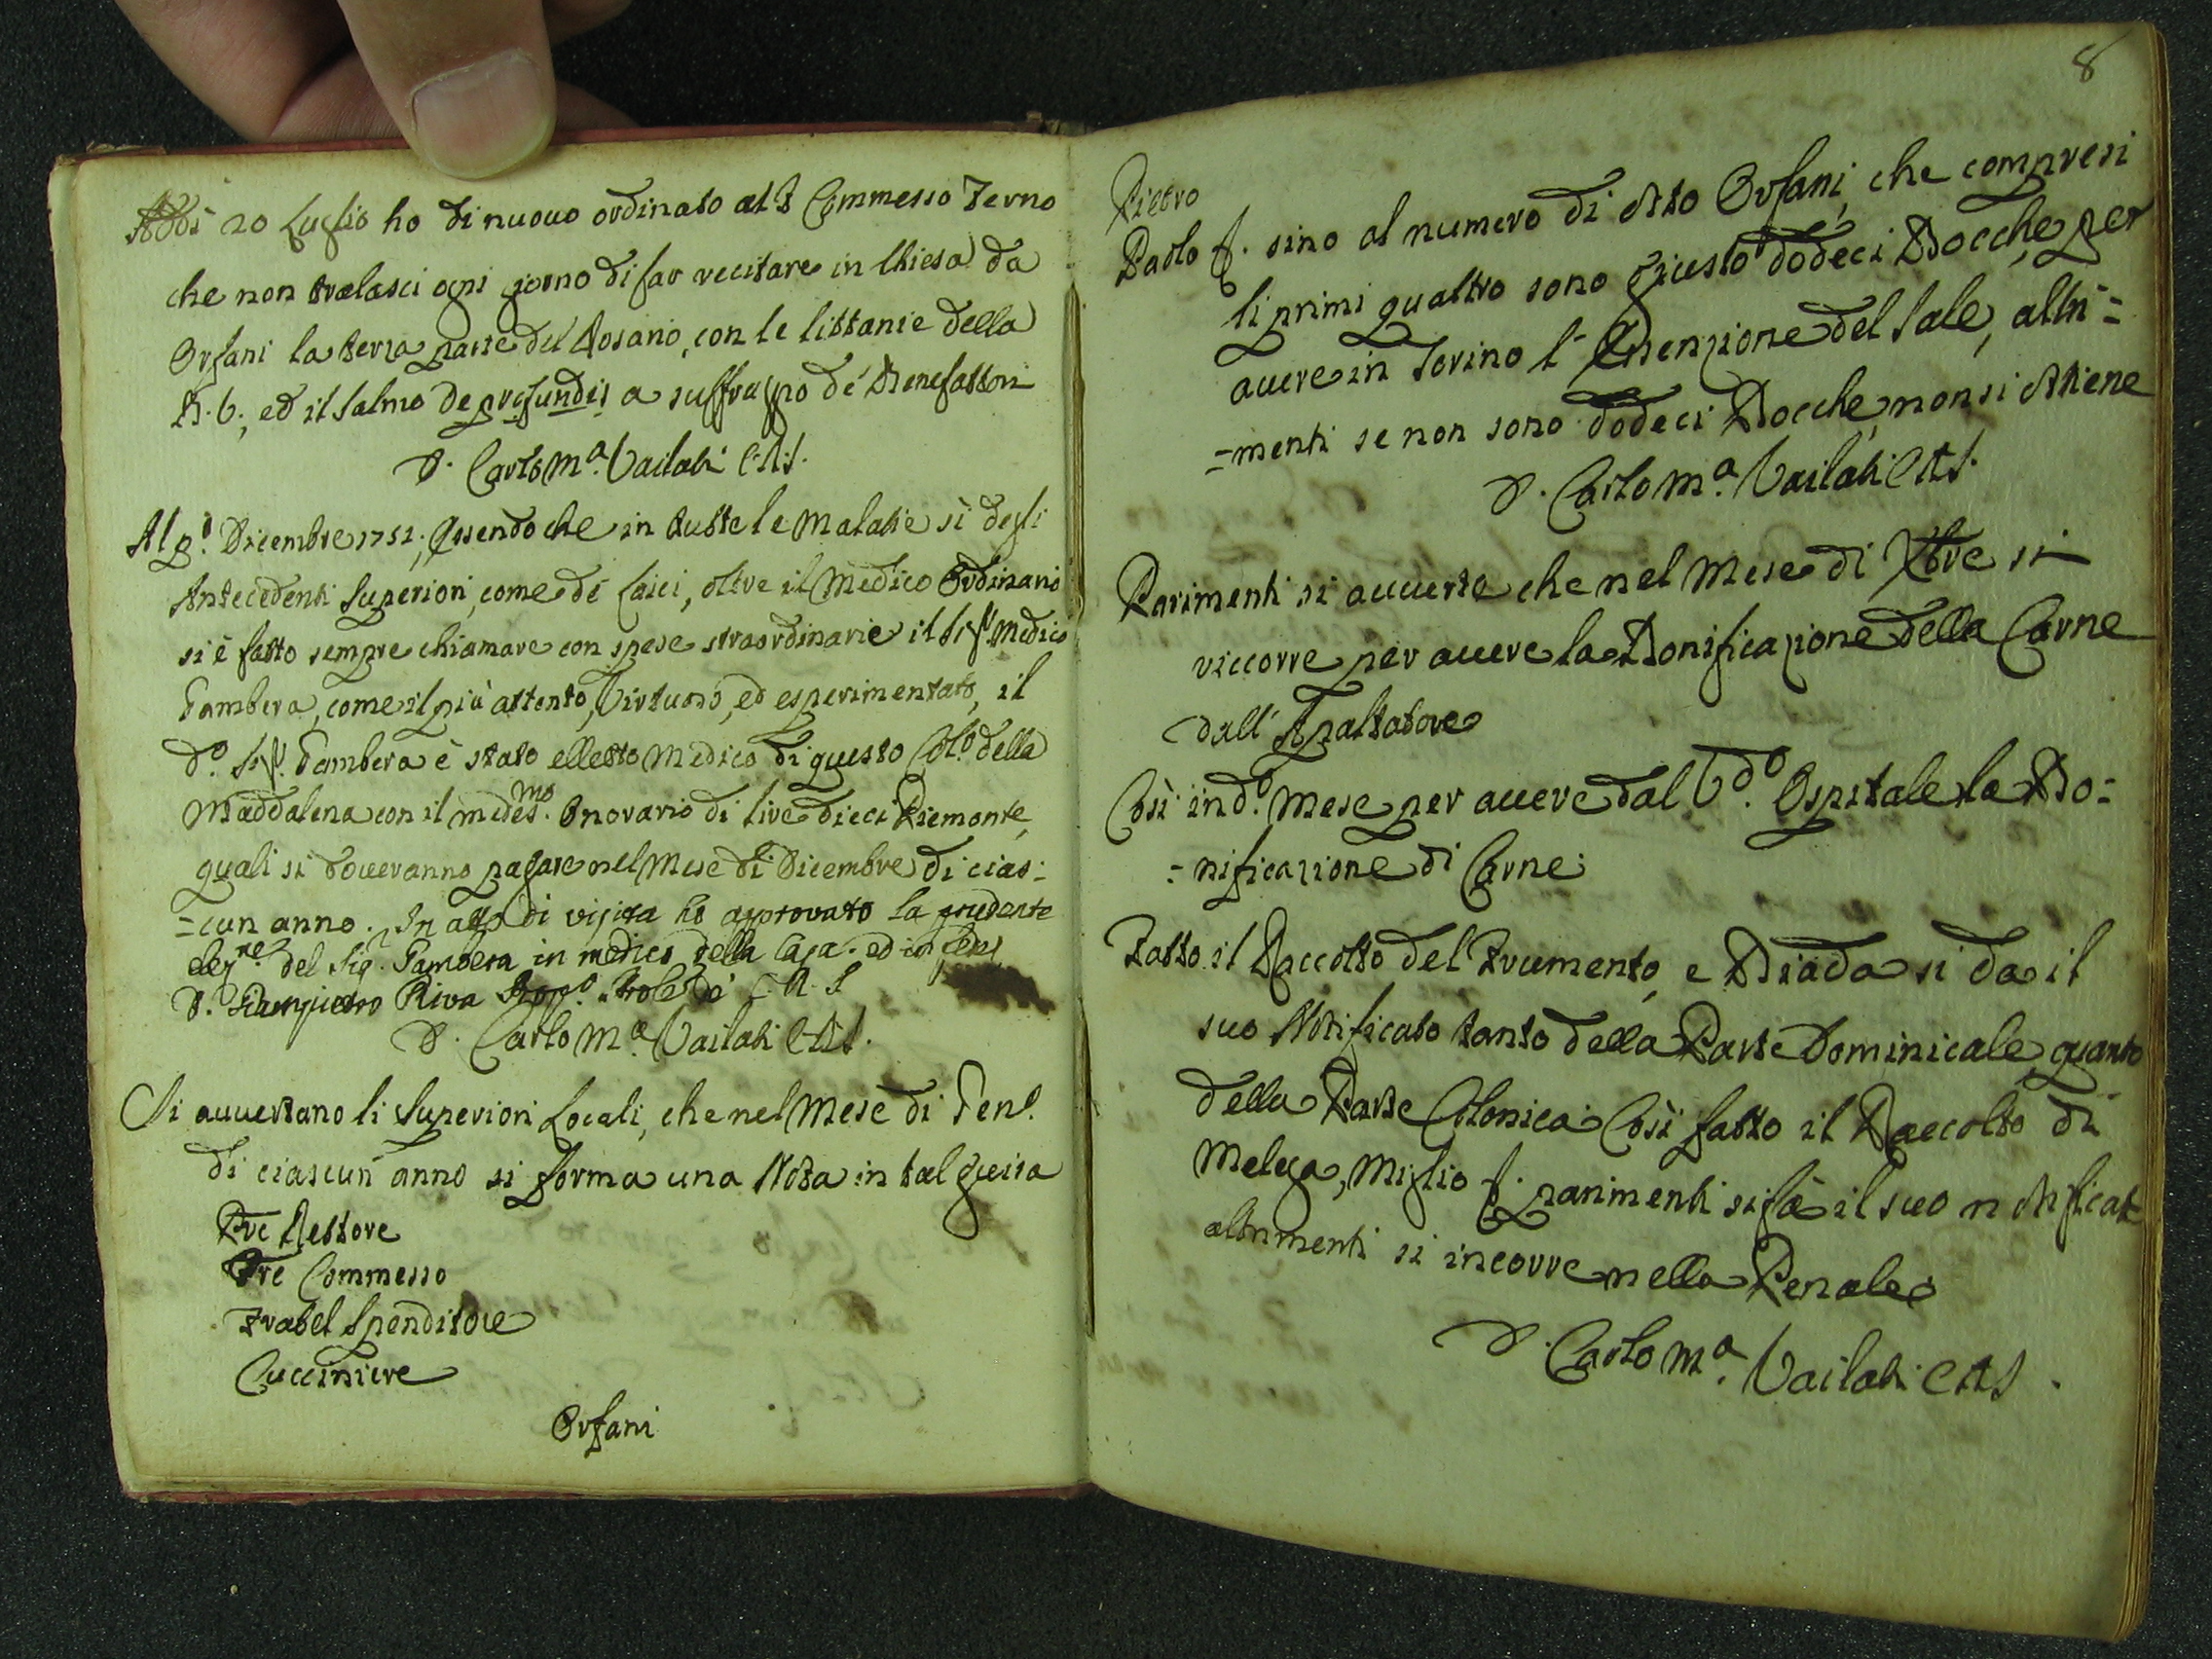 Addì 20 Luglio ho di nuovo ordinato al F. Commesso Terno
che non tralasci ogni giorno di far recitare in Chiesa da
Orfani la terza parte del Rosario, con le littanie della
B. V., ed il Salmo De profundis a suffragio de' Benefattori
D. Carlo Ma. Vailati C.R.S.
Al po. Dicembre 1752; Essendo che in tutte le malatie sì degli
Antecedenti Superiori, come de' Laici, oltre il Medico Ordinario
si è fatto sempre chiamare con spese straordinarie il Sigr. Medico
Gambera, come il più attento, Virtuoso, ed esperimentato, il
do. Sigr. Gambera è stato elletto Medico di questo Colo. della
Maddalena con il medesmo. Onorario di lire dieci Piemonte,
quali si doveranno pagare nel Mese di Dicembre di cias=
=cun anno. In atto di visita ho approvato la prudente
elezne. del Sigr. Gambera in medico della Casa. ed in fede
D. Giampietro Riva C.R.S.
D. Carlo Ma. Vailati C.R.S.
Si avvertano li Superiori Locali, che nel Mese di Geno.
di ciascun anno si forma una Nota in tal guisa
Pre Rettore
Fre Commesso
Fratel Spenditore
Cucciniere
Orfani
8
Pietro
Paolo &. sino al numero di otto Orfani, che compresi
li primi quattro sono giusto dodeci Bocche, per
avere in Torino l'Esenzione del Sale, altri=
=menti se non sono dodeci Bocche, non si ottiene
D. Carlo Ma. Vailati C.R.S.
Parimenti si avverta che nel Mese di Xbre si
riccorre per avere la Bonificazione della Carne
dall' Apaltatore
Così in do. Mese per avere dal Vdo. Ospitale la Bo=
=nificazione di Carne;
Fatto il Raccolto del Frumento, e Biada si da il
suo Notificato tanto della Parte Dominicale, quanto
della Parte Colonica; Così fatto il Raccolto di
Melega, Miglio &. parimenti si fà il suo notificato
altrimenti si incorre nella Penale
D. Carlo Ma. Vailati C.R.S.